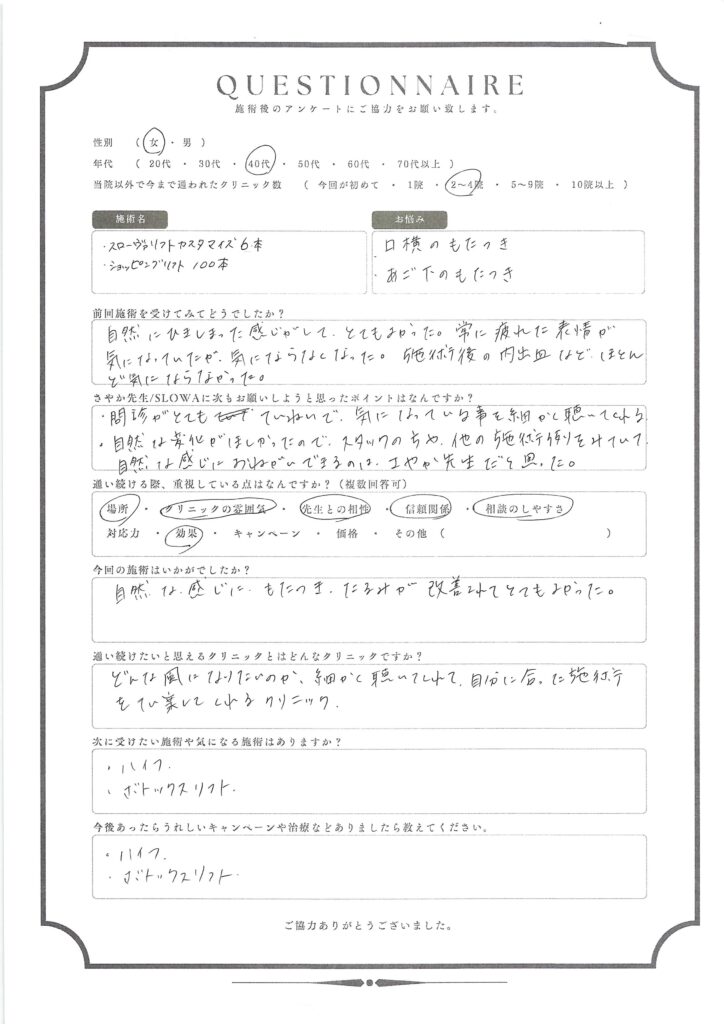 QUESTIONNAIRE
施術後のアンケートにご協力をお願い致します。
性別 ( 女 ・ 男 )
年代 ( 20代 ・ 30代 ・ 40代 ・ 50代 ・ 60代 ・ 70代以上 )
当院以外で今まで通われたクリニック数 ( 今回が初めて ・ 1院 ・ 2〜4院 ・ 5〜9院 ・ 10院以上 )
施術名
・スローヴァリフトカスタマイズ6本
・ショッピングリフト 100本
お悩み
・口横のもたつき
・あご下のもたつき
前回施術を受けてみてどうでしたか？
自然にひきしまった感じがして、とてもよかった。常に疲れた表情が
気になっていたが、気にならなくなった。施術後の内出血など、ほとん
ど気にならなかった。
さやか先生/SLOWAに次もお願いしようと思ったポイントはなんですか？
・問診がとても ていねいで、気になっている事を細かく聴いてくれる
・自然な変化がほしかったので、スタッフの方や、他の施術例をみていて、
自然な感じにおねがいできるのは、さやか先生だと思った。
通い続ける際、重視している点はなんですか？（複数回答可）
場所 ・ クリニックの雰囲気 ・ 先生との相性 ・ 信頼関係 ・ 相談のしやすさ
対応力 ・ 効果 ・ キャンペーン ・ 価格 ・ その他 ( )
今回の施術はいかがでしたか？
自然な感じに、もたつき、たるみが改善されてとてもよかった。
通い続けたいと思えるクリニックとはどんなクリニックですか？
どんな風になりたいのか、細かく聴いてくれて、自分に合った施術
をてい案してくれるクリニック。
次に受けたい施術や気になる施術はありますか？
・ハイフ
・ボトックスリフト
今後あったらうれしいキャンペーンや治療などありましたら教えてください。
・ハイフ
・ボトックスリフト
ご協力ありがとうございました。